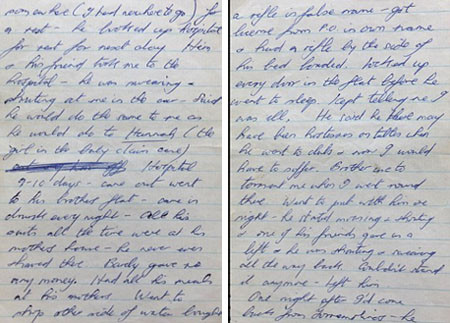 (I had nowhere to go) for
a rest - he booked up hospital
for rest for next day. Him
& his friend took me to the
hospital - he was swearing &
shouting at me in the car - said
he would do the same to me as
he would do to Hannah (the
girl in the baby claim case)
Hospital
9-10 days - came out went
to his brothers flat - came in
drunk every night - All his
suits all the time were at his
mothers home - he never even
shaved there. Barely gave me
any money. Had all his meals
at his mothers. Went to
shop other side of water bought
a rifle in false name - got
licence from P.O. in own name
& had a rifle by the side of
his bed loaded. Locked up
every door in the flat before he
went to sleep. Kept telling me I
was ill. He said he there may
have been hostesses on tables when
he went to clubs & now I would
have to suffer. Brother use to
torment me when I went round
there. Went to pub with him one
night - he started moaning & shouting
& one of his friends gave us a
lift & he was shouting & swearing
all the way back. Couldn't stand
it anymore - left him
One night after I'd come
back from - he